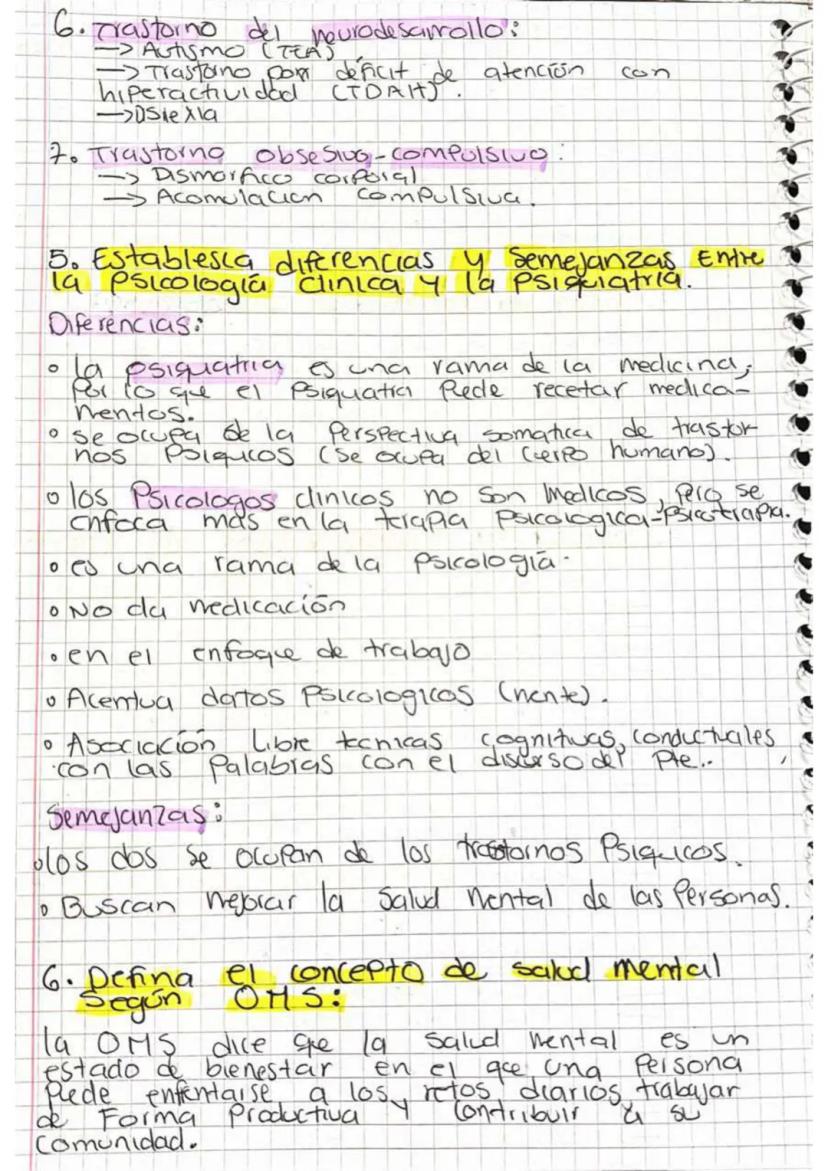 6. Trastorno del neurodesarrollo:
→ Autismo (TEA)
→ Trastorno por déficit de atención con
hiperactividad (TDAH).
→ Dslexia
7. Trastorno obsesivo-compulsivo:
→ Dismorfico corporal
→ Acomulacion compulsiva.
5. Establesca diferencias y semejanzas Entre
la psicología clínica y la psiquiatría.
Diferencias:
• la psiquatria es una rama de la medicina,
por lo que el psiquatra puede recetar medica-
mentos.
• se ocupa de la perspectiva somatica de trastor
nos psiquicos (se ocupa del cuerpo humano).
• los Psicologos clinicos no son medicos, pero se
enfoca más en la terapia psicologica-psicoterapia.
• es una rama de la psicología.
• No da medicación
• en el enfoque de trabajo
• Acentua datos psicologicos (mente).
• Asociación libre tecnicas cognitivas, conductuales
con las palabras con el discurso del pte..
Semejanzas:
• los dos se ocupan de los trastornos Psiquicos.
• Buscan mejorar la salud mental de las personas.
6. Defina el concepto de salud mental
según OMS:
la OMS dice que la salud mental es un
estado de bienestar en el que una persona
puede enfentarse a los retos diarios, trabajar
de forma productiva y contribuir a su
comunidad.